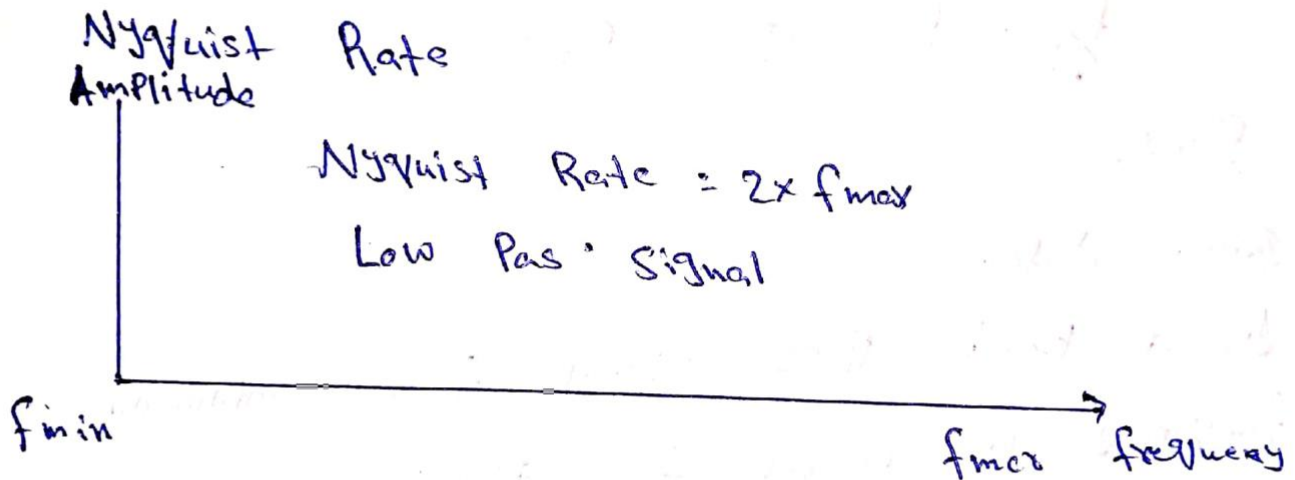 Nyquist Rate
Amplitude
Nyquist Rate = 2x fmax
Low Pas signal
fmin
fmax frequency